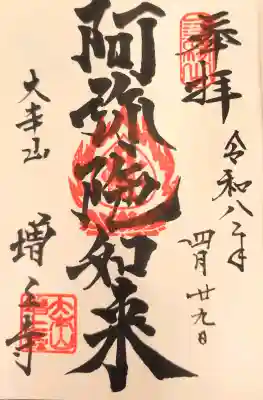 奉拝
令和八年
四月廿九日
阿弥陀如来
大本山
増上寺